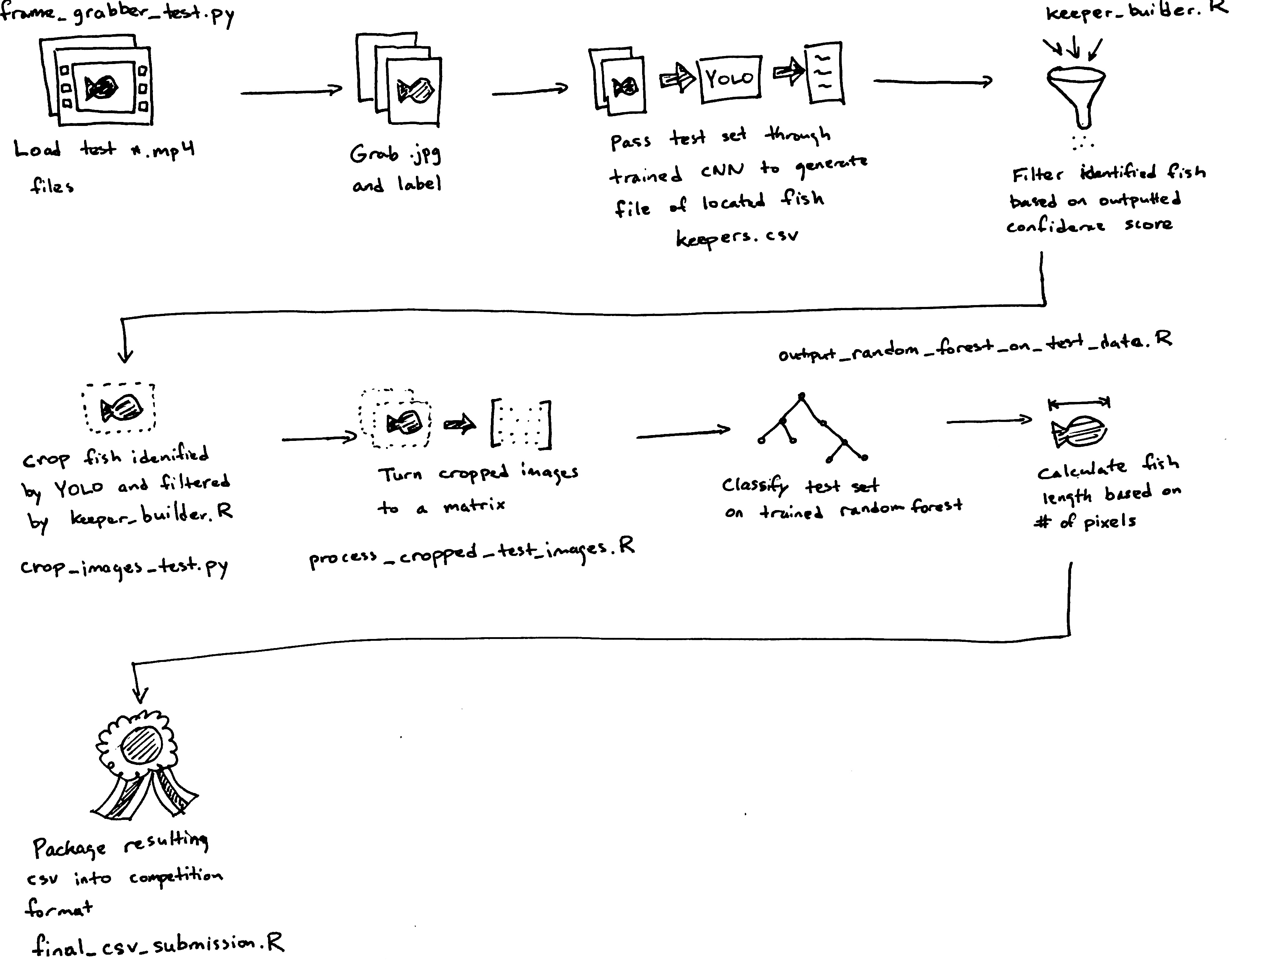 frame_grabber_test.py
Load test *.mp4
files
Grab .jpg
and label
YOLO
Pass test set through
trained CNN to generate
file of located fish
keepers.csv
keeper_builder.R
Filter identified fish
based on outputted
confidense score
Crop fish idenified
by YOLO and filtered
by keeper_builder.R
crop_images_test.py
Turn cropped images
to a matrix
process_cropped_test_images.R
output_random_forest_on_test_data.R
Classify test set
on trained random forest
Calculate fish
length based on
# of pixels
Package resulting
csv into competition
format
final_csv_submission.R